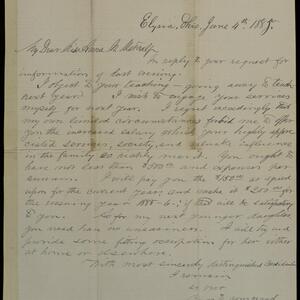 Elyria, Ohio, June 4th 1885.
My Dear Miss Anna M. Metcalf
In reply to your request for
information of last evening.
I object to your teaching — going away to teach
next year. I wish to engage your services
myself for next year. I regret exceedingly that
my own limited circumstances forbid me to offer
you the increased salary which your highly appre-
ciated services, society, and valuable influence
in the family so richly merit. You ought to
have not less than $ and expenses per
annum. I will pay you the $150.00 agreed
upon for the current year, and make it $200.00 for
the ensuing year 1885-6; if that will be satisfactory
to you. As for my next younger daughter
you need have no uneasiness. I will try and
provide some fitting occupation for her either
at home or elsewhere.
With most sincerely distinguished consideration
I remain
as ever